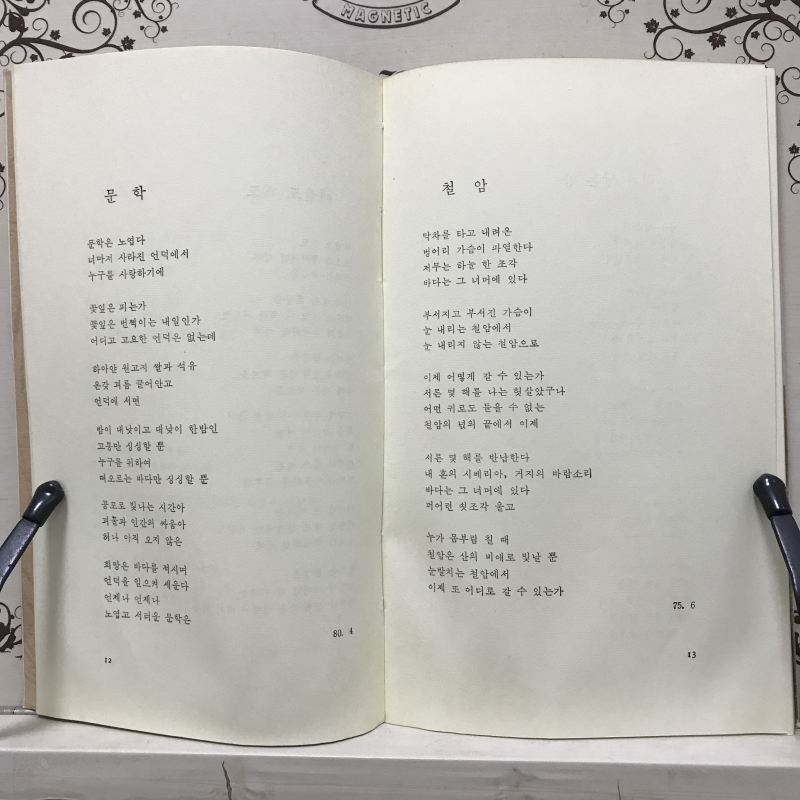 MAGNETIC
문 학
문학은 노엽다
너마저 사라진 언덕에서
누구를 사랑하기에
꽃잎은 피는가
꽃잎은 번쩍이는 내일인가
어디고 고요한 언덕은 없는데
하아얀 원고지 쌀과 석유
온갖 피륙 끌어안고
언덕에 서면
밤이 대낮이고 대낮이 한밤인
고통만 싱싱할 뿐
누구를 위하여
떠오르는 바다만 싱싱할 뿐
공포로 빛나는 시간아
피풀과 인간의 싸움아
허나 아직 오지 않은
희망은 바다를 적시며
언덕을 일으켜 세운다
언제나 언제나
노엽고 서러운 문학은
80. 4
12
철 암
막차를 타고 내려온
벙어리 가슴이 파열한다
저무는 하늘 한 조각
바다는 그 너머에 있다
부서지고 부서진 가슴이
눈 내리는 철암에서
눈 내리지 않는 철암으로
이제 어떻게 갈 수 있는가
서른 몇 해를 나는 헛살았구나
어떤 귀로도 들을 수 없는
철암의 넋의 끝에서 이제
서른 몇 해를 반납한다
내 혼의 시베리아, 거지의 바람소리
바다는 그 너머에 있다
퍼어런 쇳조각 울고
누가 몸부림 칠 때
철암은 산의 비애로 빛날 뿐
눈발치는 철암에서
이제 또 어디로 갈 수 있는가
75. 6
13